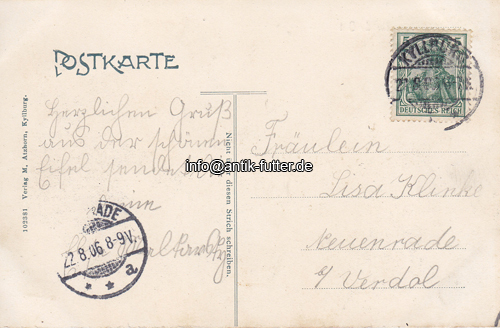 POSTKARTE
5
5
KYLLBURG
DEUTSCHES REICH
Herzlichen Gruß
aus der schönen
Eifel sendet
info@antik-futter.de
Fräulein
Lisa Klinke
Neuenrade
a/ Verdol
RADE
22.8.06 8-9V.
* * a
102381 Verlag M. Atzhorn, Kyllburg.
Nicht diesen Strich schreiben.